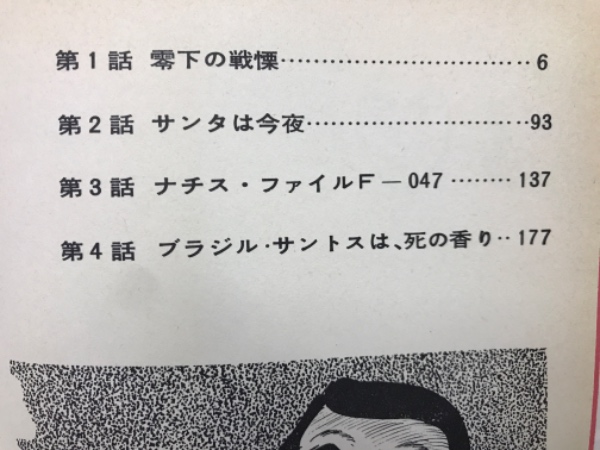 第1話 零下の戦慄…………………………6
第2話 サンタは今夜………………………93
第3話 ナチス・ファイルF―047………137
第4話 ブラジル・サントスは、死の香り‥177